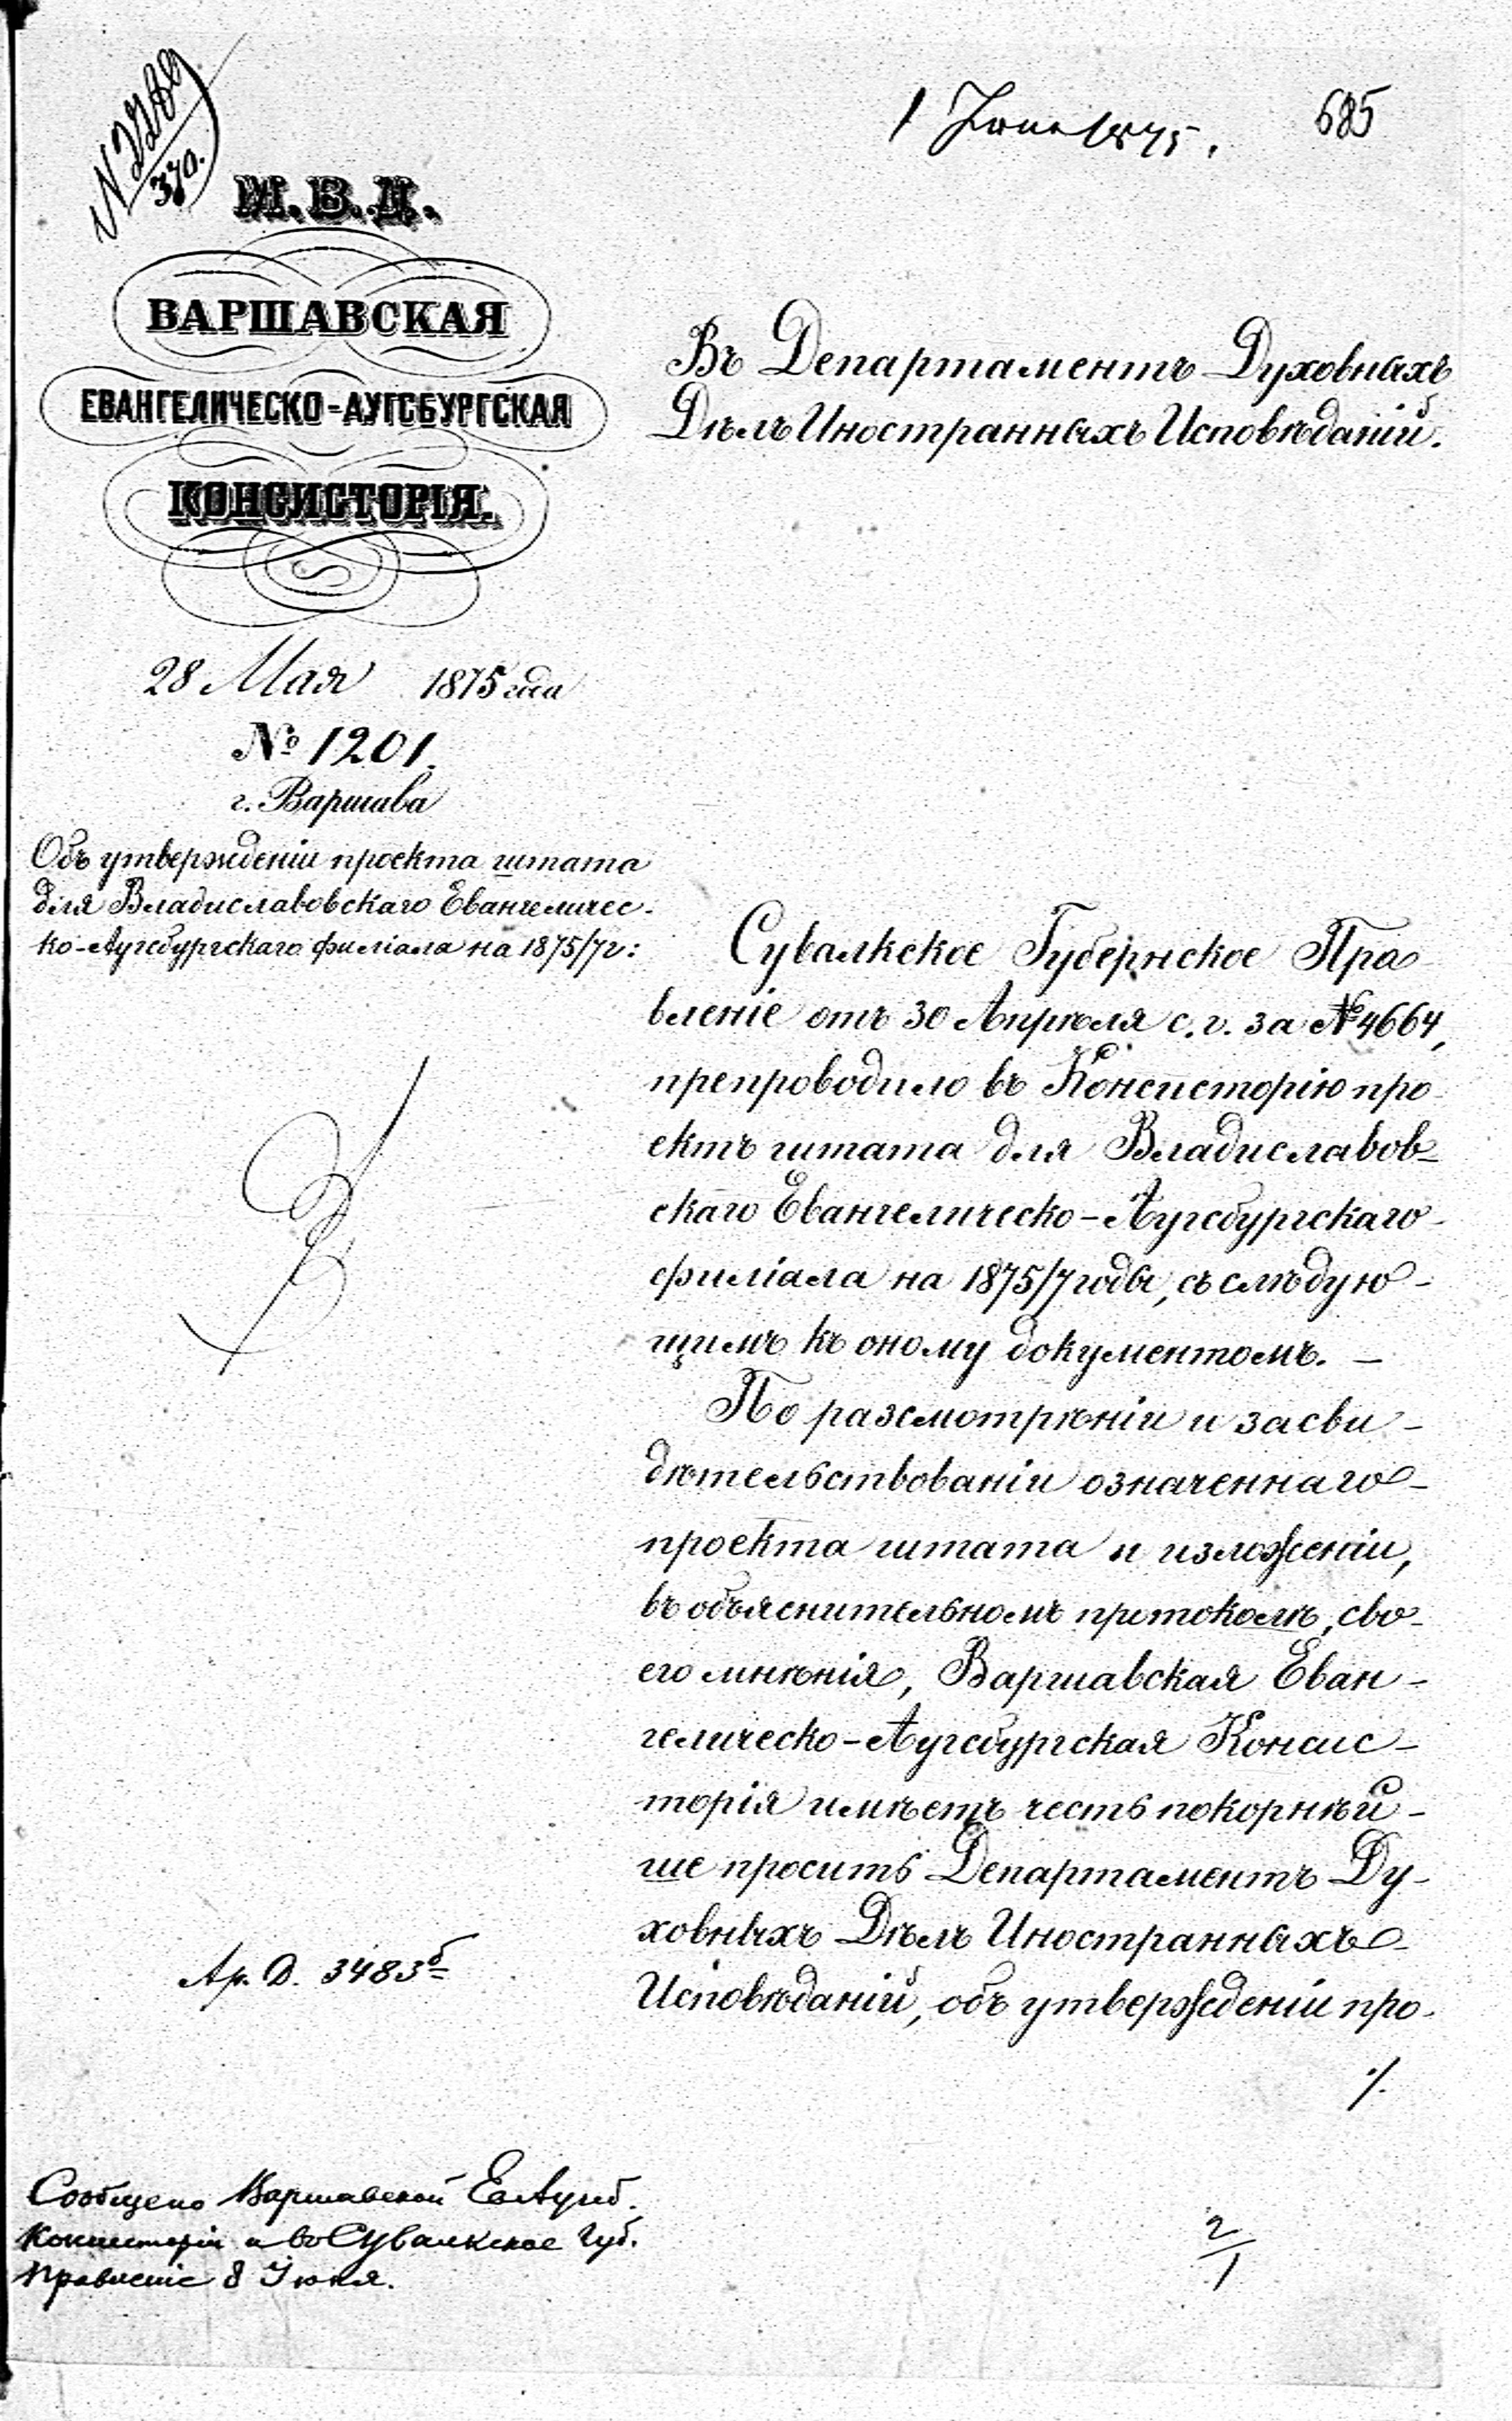 № 2289
370.
1 Іюня 1875.
685
М.В.Д.
ВАРШАВСКАЯ
ЕВАНГЕЛИЧЕСКО-АУГСБУРГСКАЯ
КОНСИСТОРІЯ.
28 Мая 1875 года
№ 1201.
г. Варшава
Объ утвержденіи проекта штата
для Владиславовскаго Евангеличес-
ко-Аугсбургскаго филіала на 1875/7 г:
Въ Департаментъ Духовныхъ
Дѣлъ Иностранныхъ Исповѣданій.
Сувалкское Губернское Пра-
вленіе отъ 30 Апрѣля с. г. за № 4664,
препроводило въ Консисторію про-
ектъ штата для Владиславов-
скаго Евангелическо-Аугсбургскаго
филіала на 1875/7 годы, съ слѣдую-
щимъ къ оному документомъ. —
По разсмотрѣніи и засви-
дѣтельствованіи означеннаго
проекта штата и изложеніи,
въ объяснительномъ протоколѣ, сво-
его мнѣнія, Варшавская Еван-
гелическо-Аугсбургская Консис-
торія имѣетъ честь покорнѣй-
ше просить Департаментъ Ду-
ховныхъ Дѣлъ Иностранныхъ
Исповѣданій, объ утвержденіи про-
./.
Ар. Д. 3483б
Сообщено Варшавской Ев Аугсб.
Консисторіи и въ Сувалкское Губ.
Правленіе 8 Іюня.
2/1